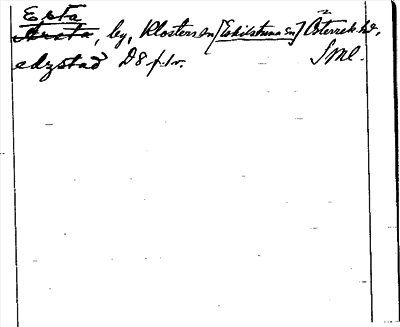 Epta
Arsta, by, Klosters sn [Eskilstuna sn] Österrek hd,
edzstad D8 f.1v. Sml.